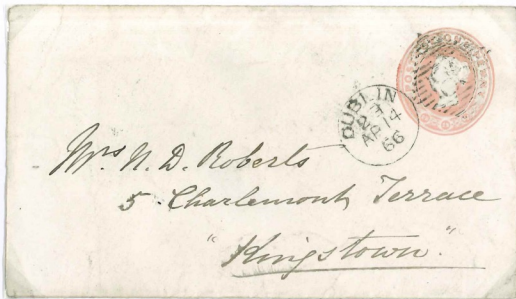 DUBLIN
AP 14
66
Mrs N. D. Roberts
5 Charlemont Terrace
"Kingstown."